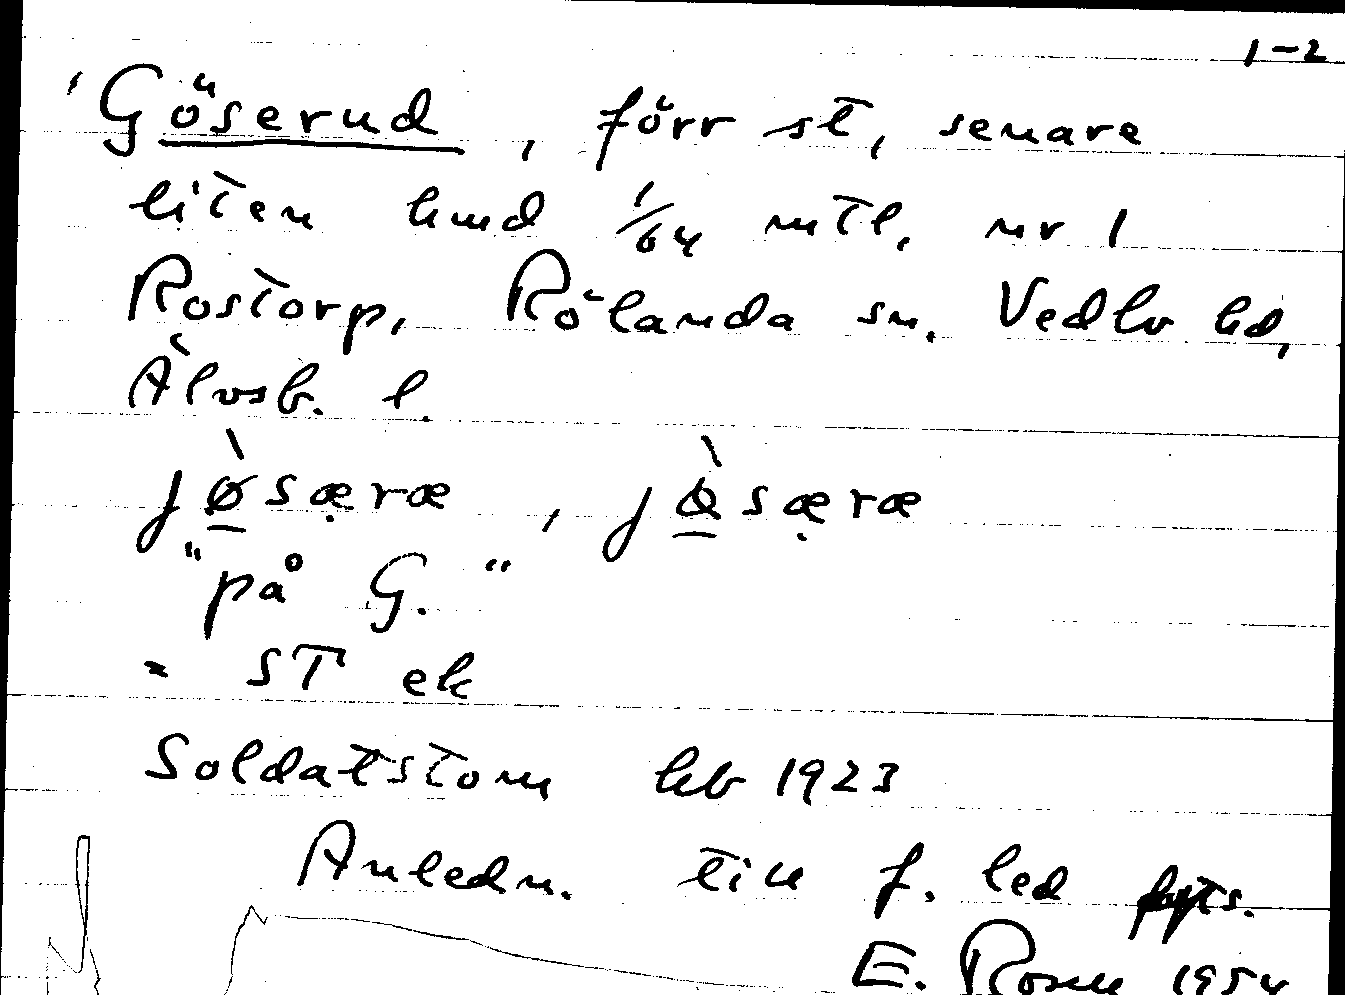 1-2
'Göserud, förr st, senare
liten hmd 1/64 mtl. nr 1
Rostorp, Rölanda sn. Vedbo hd,
Älvsb. l.
jø̀særæ, jò̀særæ
"på G."
= ST ek
Soldatstom hb 1923
Anledn. till f. led
E. Rosell 1954